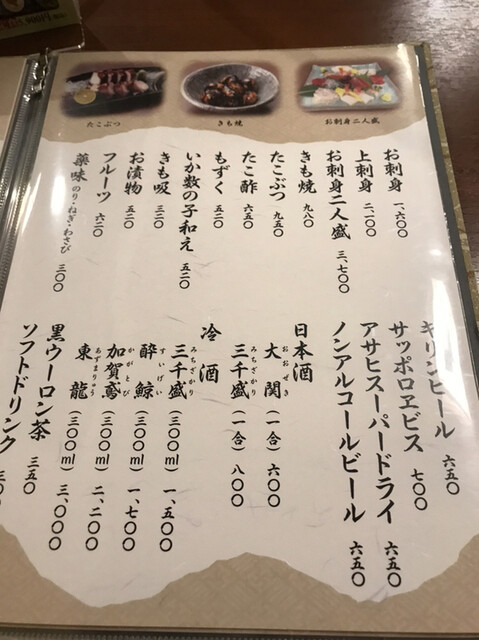 たこぶつ
きも焼
お刺身二人盛
お刺身 一、六〇〇
上刺身 二、一〇〇
お刺身二人盛 三、七〇〇
きも焼 九八〇
たこぶつ 九五〇
たこ酢 六五〇
もずく 五二〇
いか数の子和え 五二〇
きも吸 三二〇
お漬物 五二〇
フルーツ 六二〇
薬味 のり・ねぎ・わさび 三〇〇
キリンビール 六五〇
サッポロヱビス 七〇〇
アサヒスーパードライ 六五〇
ノンアルコールビール 六五〇
日本酒
大関 おおぜき (一合) 六〇〇
三千盛 みちざかり (一合) 八〇〇
冷酒
三千盛 みちざかり (三〇〇ml) 一、五〇〇
酔鯨 すいげい (三〇〇ml) 一、七〇〇
加賀鳶 かがとび (三〇〇ml) 二、二〇〇
東龍 あずまりゅう (三〇〇ml) 三、〇〇〇
黒ウーロン茶 三五〇
ソフトドリンク